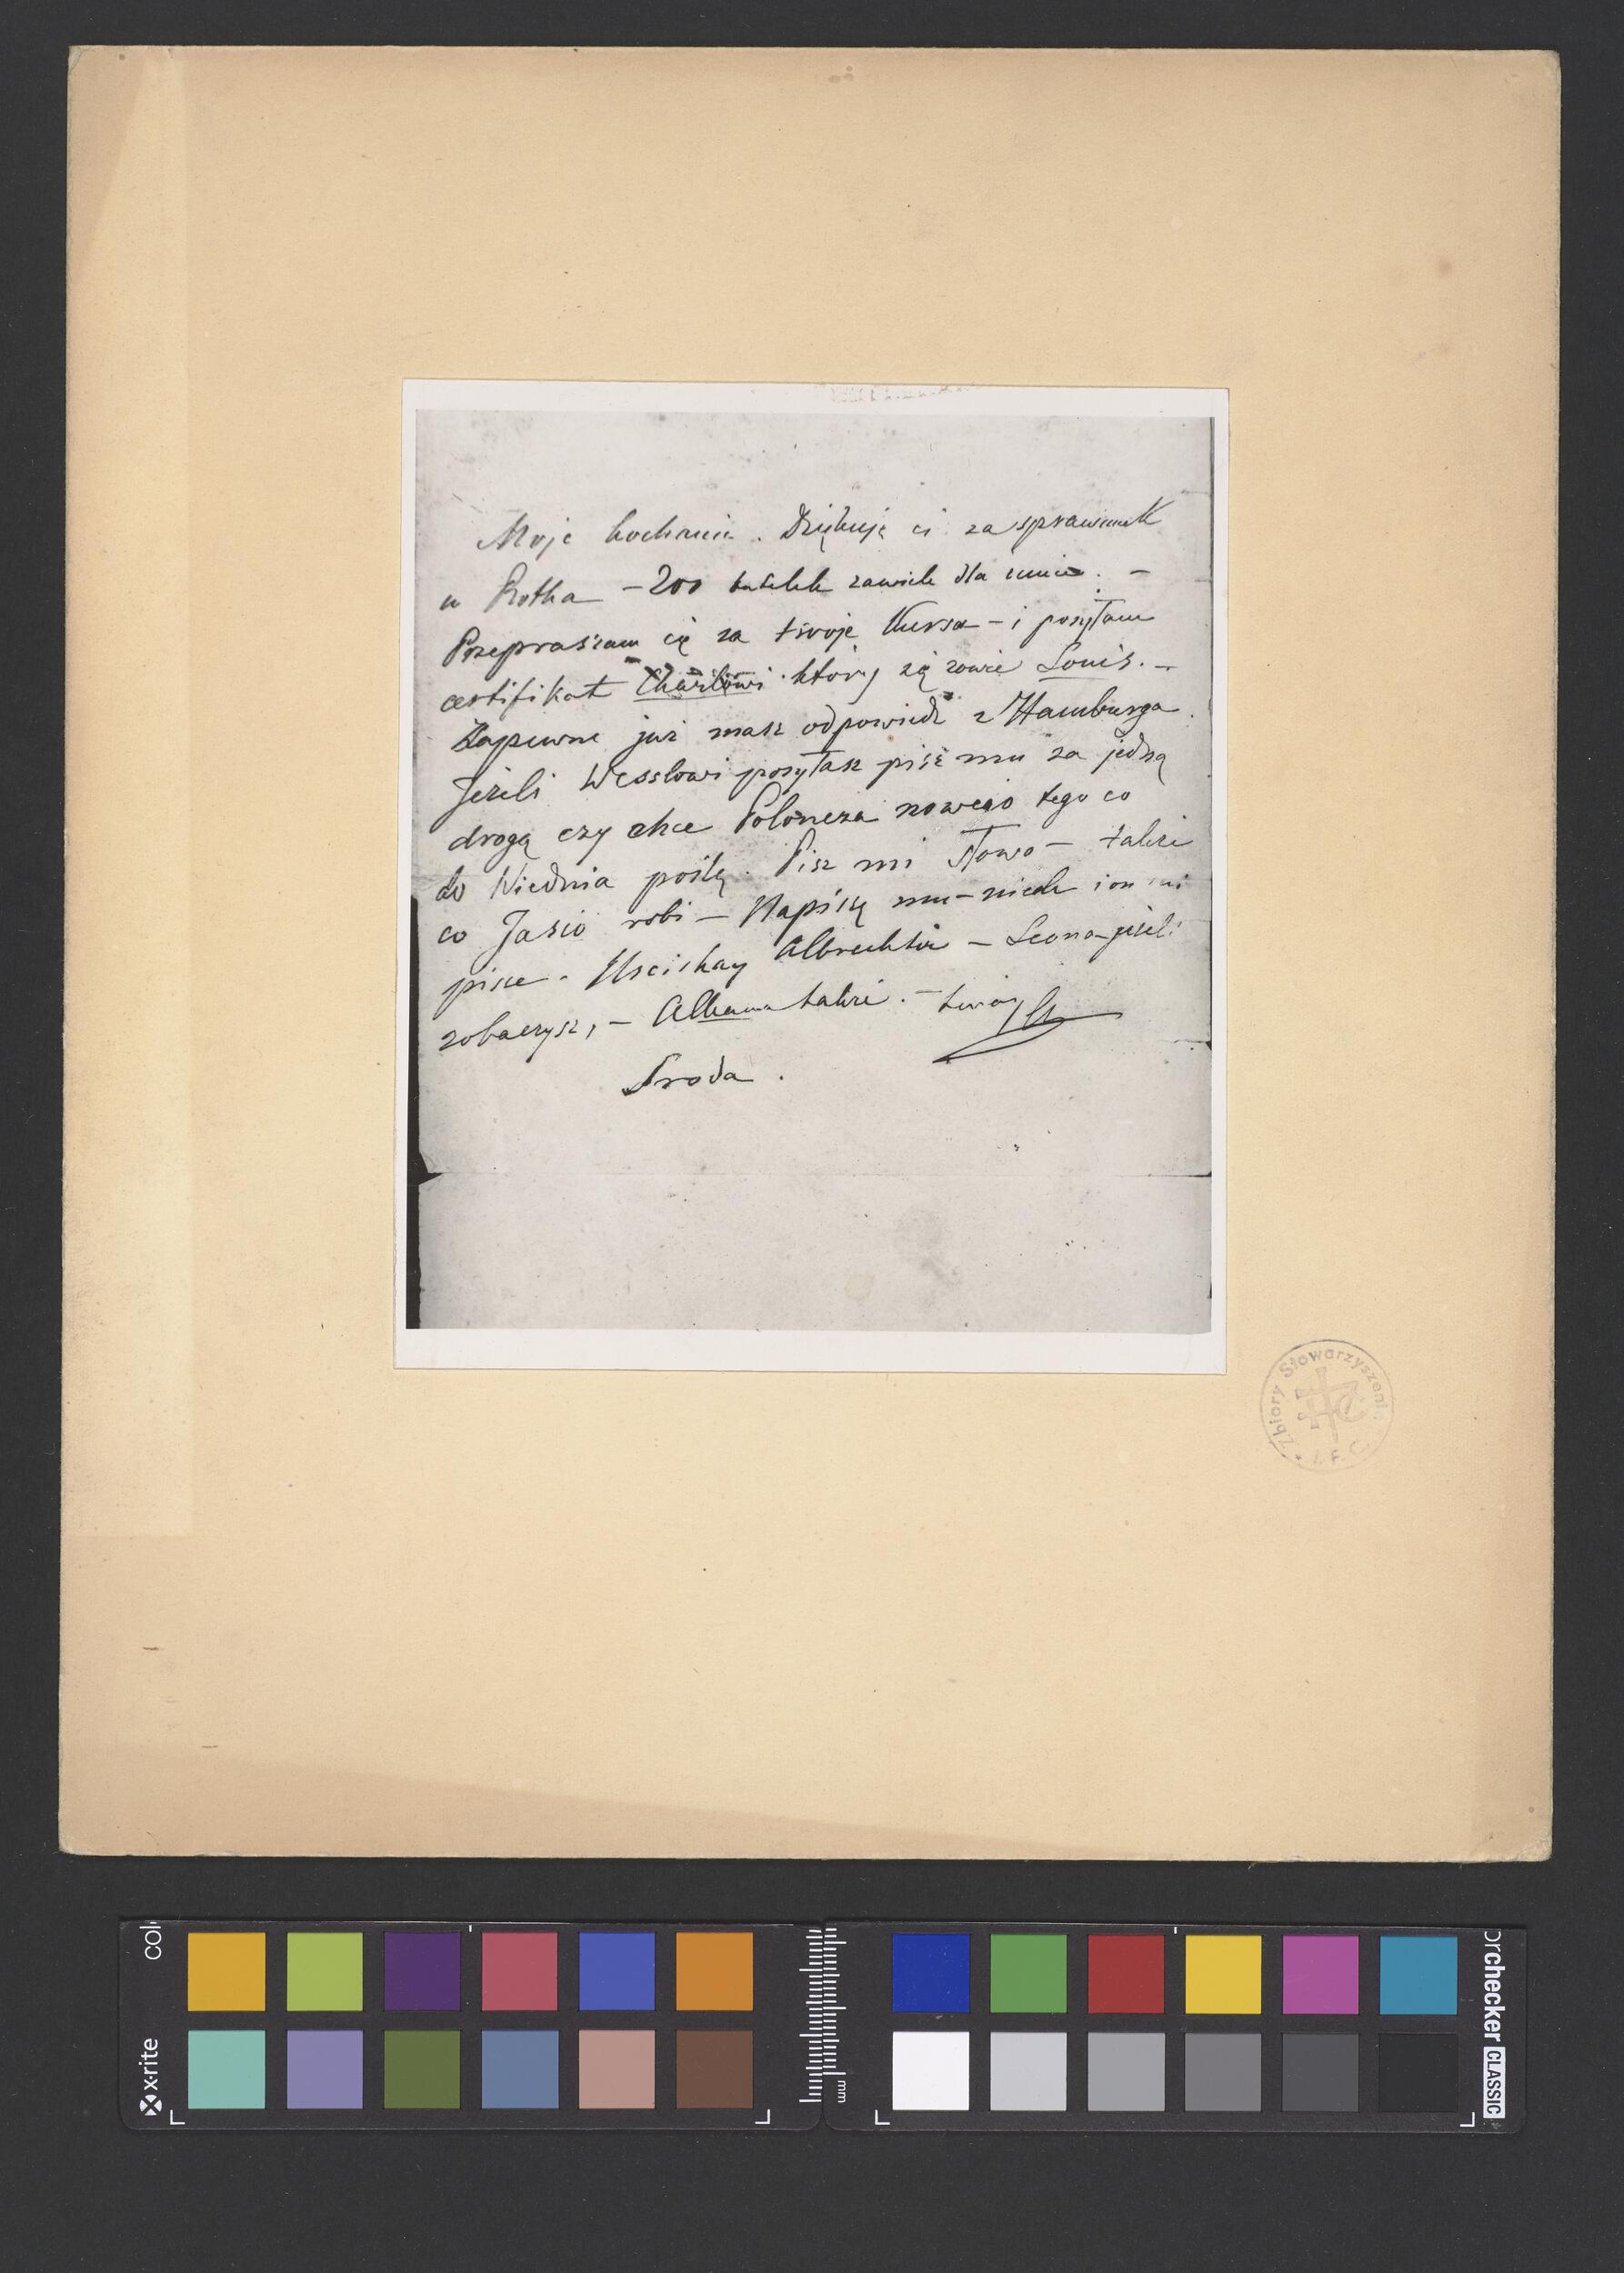 Moje kochanie. Dziękuję ci za sprawunek
u Rotha – 200 butelek zawiele dla mnie. –
Przepraszam cię za twoje Kursa – i posyłam
certifikat Charlowi który się zowie Louis. –
Zapewne już masz odpowiedź z Hamburga.
Jeżeli Wesslowi posyłasz pisz mu za jedną
drogą czy chce Poloneza nowego tego co
do Wiednia poślę. Pisz mi słowo – także
co Jasio robi – Napiszę mu – niech i on mi
pisze. Usciskay Albrechta – Leona jeżeli
zobaczysz, – Alkana także. – twój
Sroda.
Zbiory Stowarzyszenia
colorchecker CLASSIC
x-rite
mm